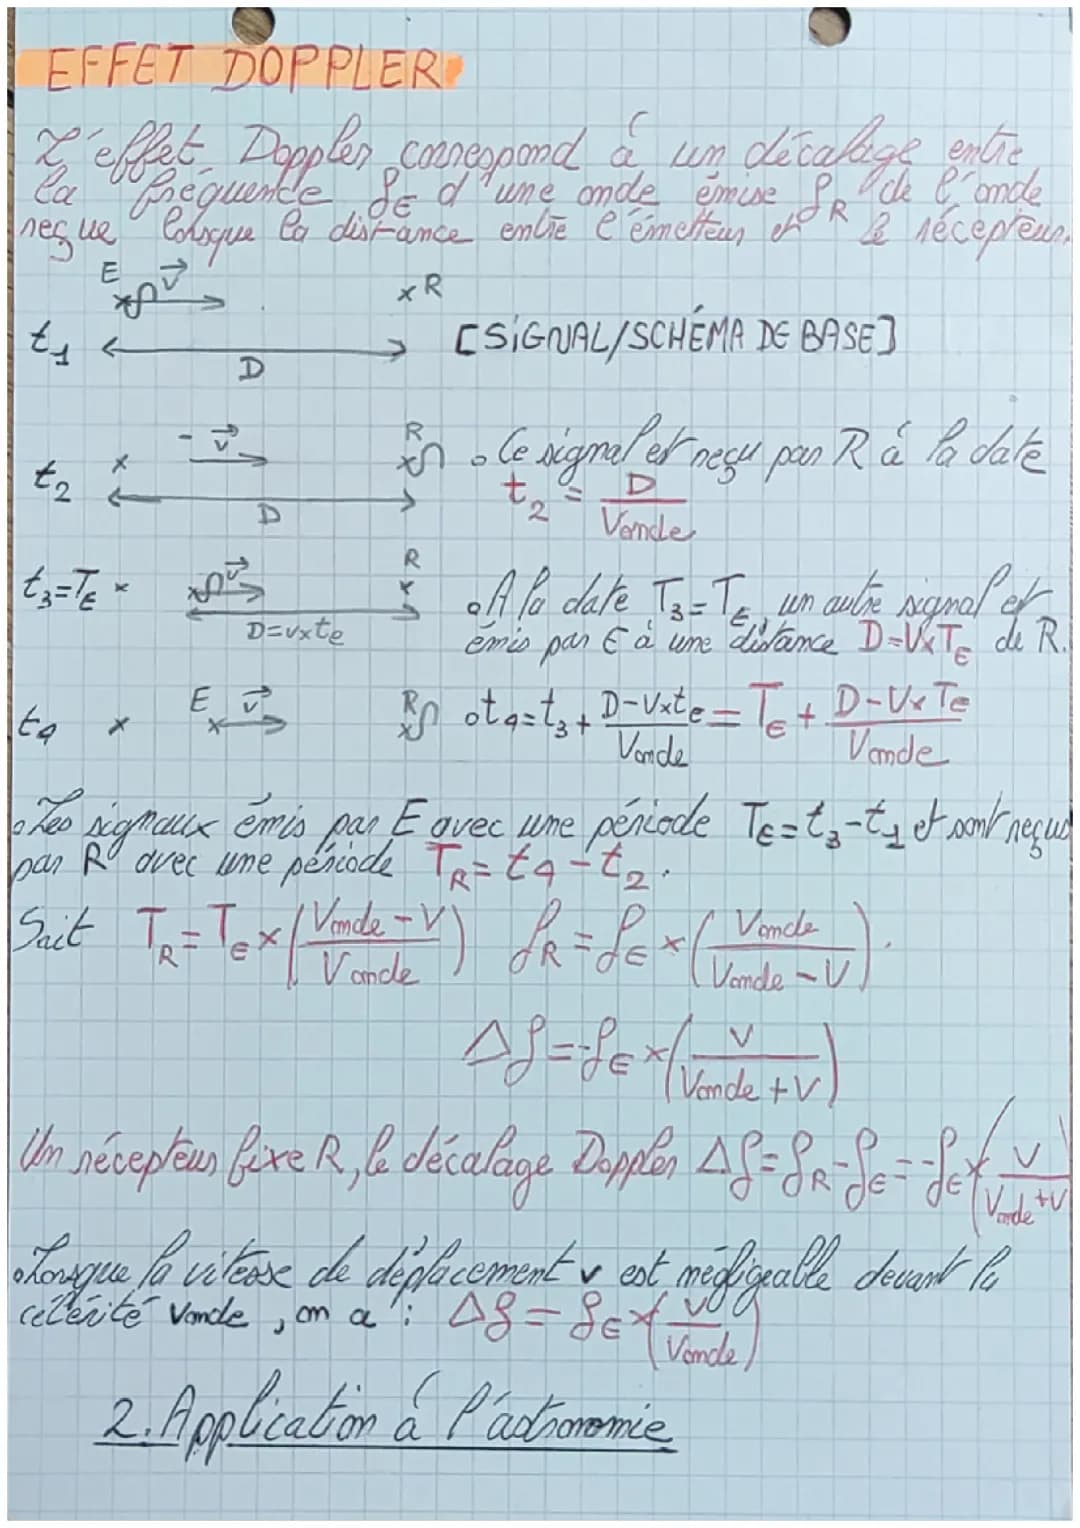 EFFET DOPPLER
L'effet Doppler correspond à un décalage entre
la fréquence fE d'une onde émise fR de l'onde
reçue lorsque la distance entre l'émetteur et le récepteur.
E v⃗ R
t1 D [SIGNAL/SCHÉMA DE BASE]
- v⃗ R
t2 D • Ce signal et reçu par R à la date
t2 = D/Vonde
t3=TE v⃗ R
D=v×te
• A la date T3=TE un autre signal et
émis par E à une distance D=V×TE de R.
t4 E v⃗ R • t4=t3+ (D-V×te)/Vonde = TE + (D-V×Te)/Vonde
• Les signaux émis par E avec une période TE=t3-t1 et sont reçus
par R avec une période TR=t4-t2.
Sait TR=TE×((Vonde-V)/Vonde) fR=fE×(Vonde/(Vonde-V)).
Δf=-fE×(V/(Vonde+V))
Un récepteur fixe R, le décalage Doppler Δf=fR-fE=-fE×(V/(Vonde+V)
• Lorsque la vitesse de déplacement v est négligeable devant la
célérité Vonde, on a : Δf=fE×(V/Vonde)
2. Application à l'astronomie